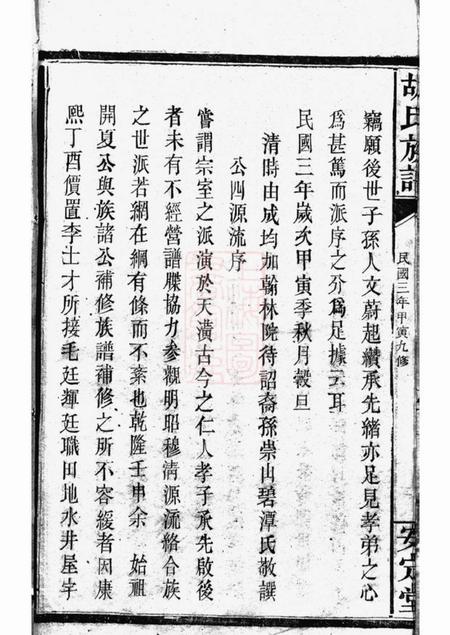 胡氏族譜
民國三年甲寅九修
安定堂
竊願後世子孫人文蔚起纘承先緒亦足見孝弟之心
為甚篤而派序之分為足據云耳
民國三年歲次甲寅季秋月穀旦
清時由成均加翰林院待詔裔孫崇山碧潭氏敬譔
公四源流序
嘗謂宗室之派演於天潢古今之仁人孝子承先啟後
者未有不經營譜牒協力參觀明昭穆清源流絡合族
之世派若網在綱有條而不紊也乾隆壬申余 始祖
開夏公與族諸公補修族譜補修之所不容緩者因康
熙丁酉價置李士才所接毛廷輝廷職田地水井屋宇